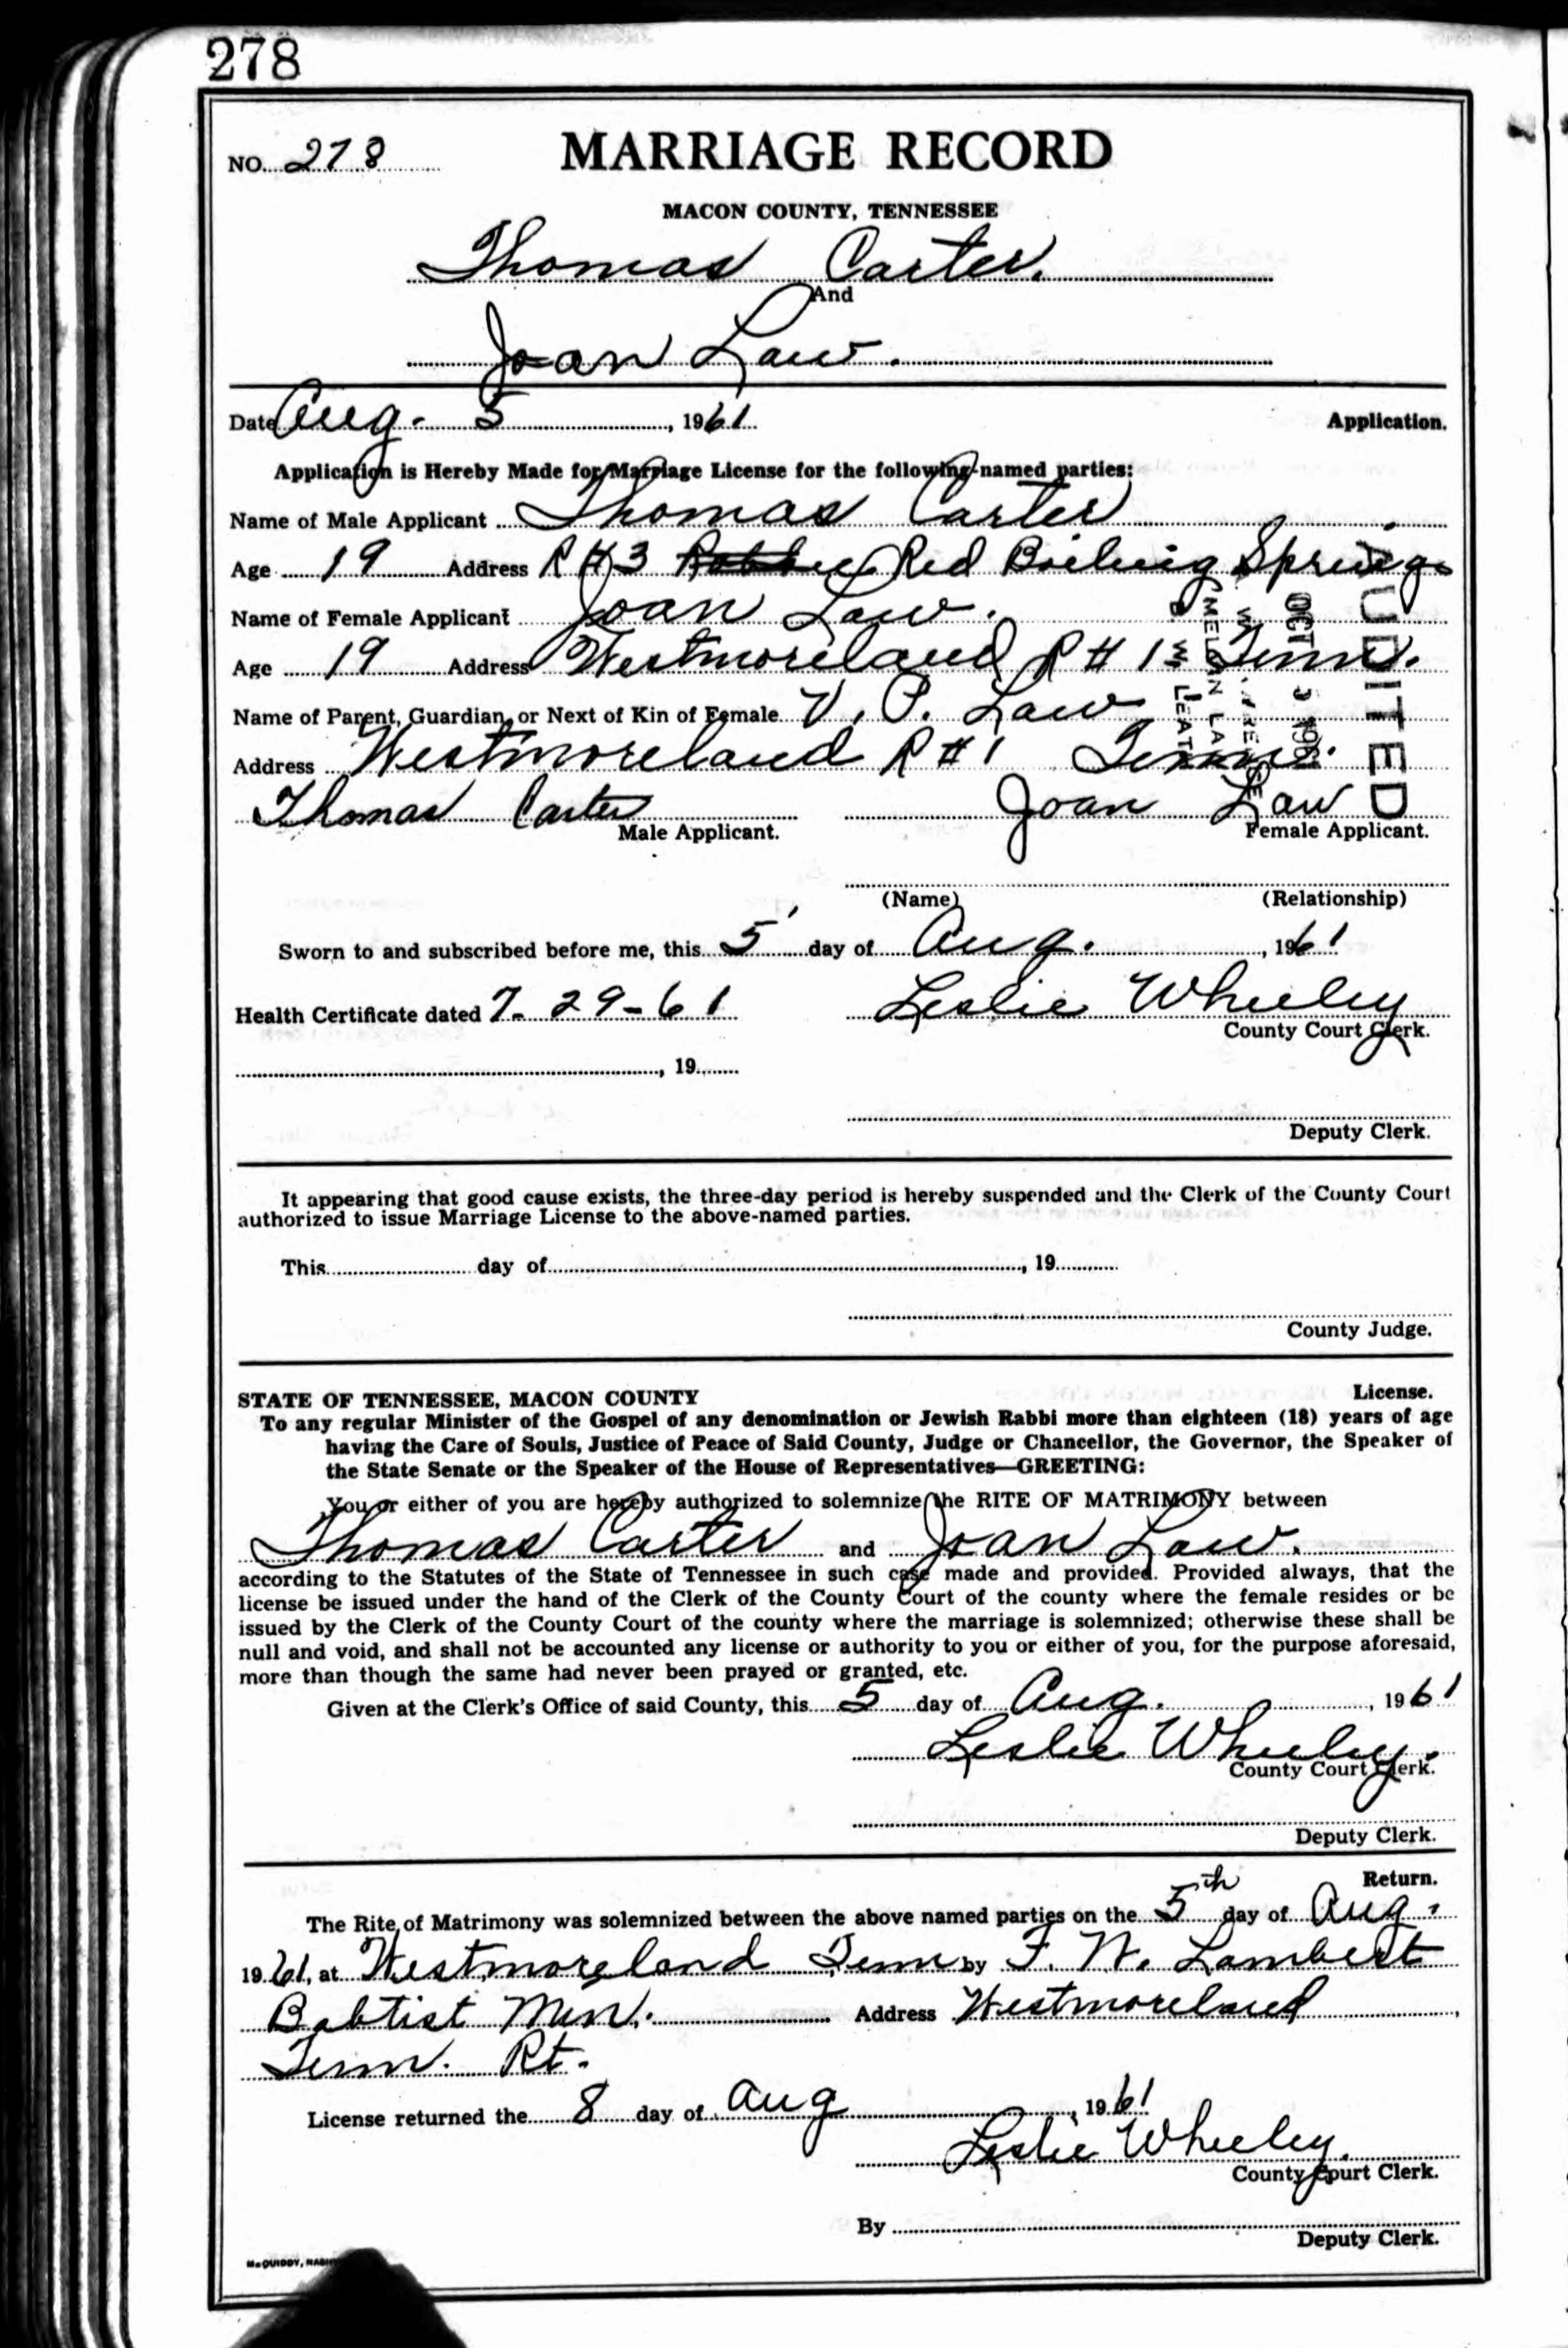 278
NO. 278
MARRIAGE RECORD
MACON COUNTY, TENNESSEE
Thomas Carter.
And
Joan Law.
Date Aug. 5, 1961. Application.
Application is Hereby Made for Marriage License for the following-named parties:
Name of Male Applicant Thomas Carter
Age 19 Address R#3 Red Boiling Springs
Name of Female Applicant Joan Law.
Age 19 Address Westmoreland R#1 Tenn.
Name of Parent, Guardian, or Next of Kin of Female V. P. Law
Address Westmoreland R#1 Tenn.
UDITED
OCT
Thomas Carter Joan Law
Male Applicant. Female Applicant.
(Name) (Relationship)
Sworn to and subscribed before me, this 5 day of Aug., 1961
Health Certificate dated 7-29-61 Leslie Wheeley
County Court Clerk.
, 19
Deputy Clerk.
It appearing that good cause exists, the three-day period is hereby suspended and the Clerk of the County Court
authorized to issue Marriage License to the above-named parties.
This day of , 19
County Judge.
STATE OF TENNESSEE, MACON COUNTY License.
To any regular Minister of the Gospel of any denomination or Jewish Rabbi more than eighteen (18) years of age
having the Care of Souls, Justice of Peace of Said County, Judge or Chancellor, the Governor, the Speaker of
the State Senate or the Speaker of the House of Representatives—GREETING:
You or either of you are hereby authorized to solemnize the RITE OF MATRIMONY between
Thomas Carter and Joan Law.
according to the Statutes of the State of Tennessee in such case made and provided. Provided always, that the
license be issued under the hand of the Clerk of the County Court of the county where the female resides or be
issued by the Clerk of the County Court of the county where the marriage is solemnized; otherwise these shall be
null and void, and shall not be accounted any license or authority to you or either of you, for the purpose aforesaid,
more than though the same had never been prayed or granted, etc.
Given at the Clerk's Office of said County, this 5 day of Aug., 1961
Leslie Wheeley.
County Court Clerk.
Deputy Clerk.
Return.
The Rite of Matrimony was solemnized between the above named parties on the 5th day of Aug.
1961, at Westmoreland Tenn by F. W. Lambert
Babtist Min. Address Westmoreland
Tenn. Rt.
License returned the 8 day of Aug, 1961
Leslie Wheeley.
County Court Clerk.
By
Deputy Clerk.
McQUIDDY,